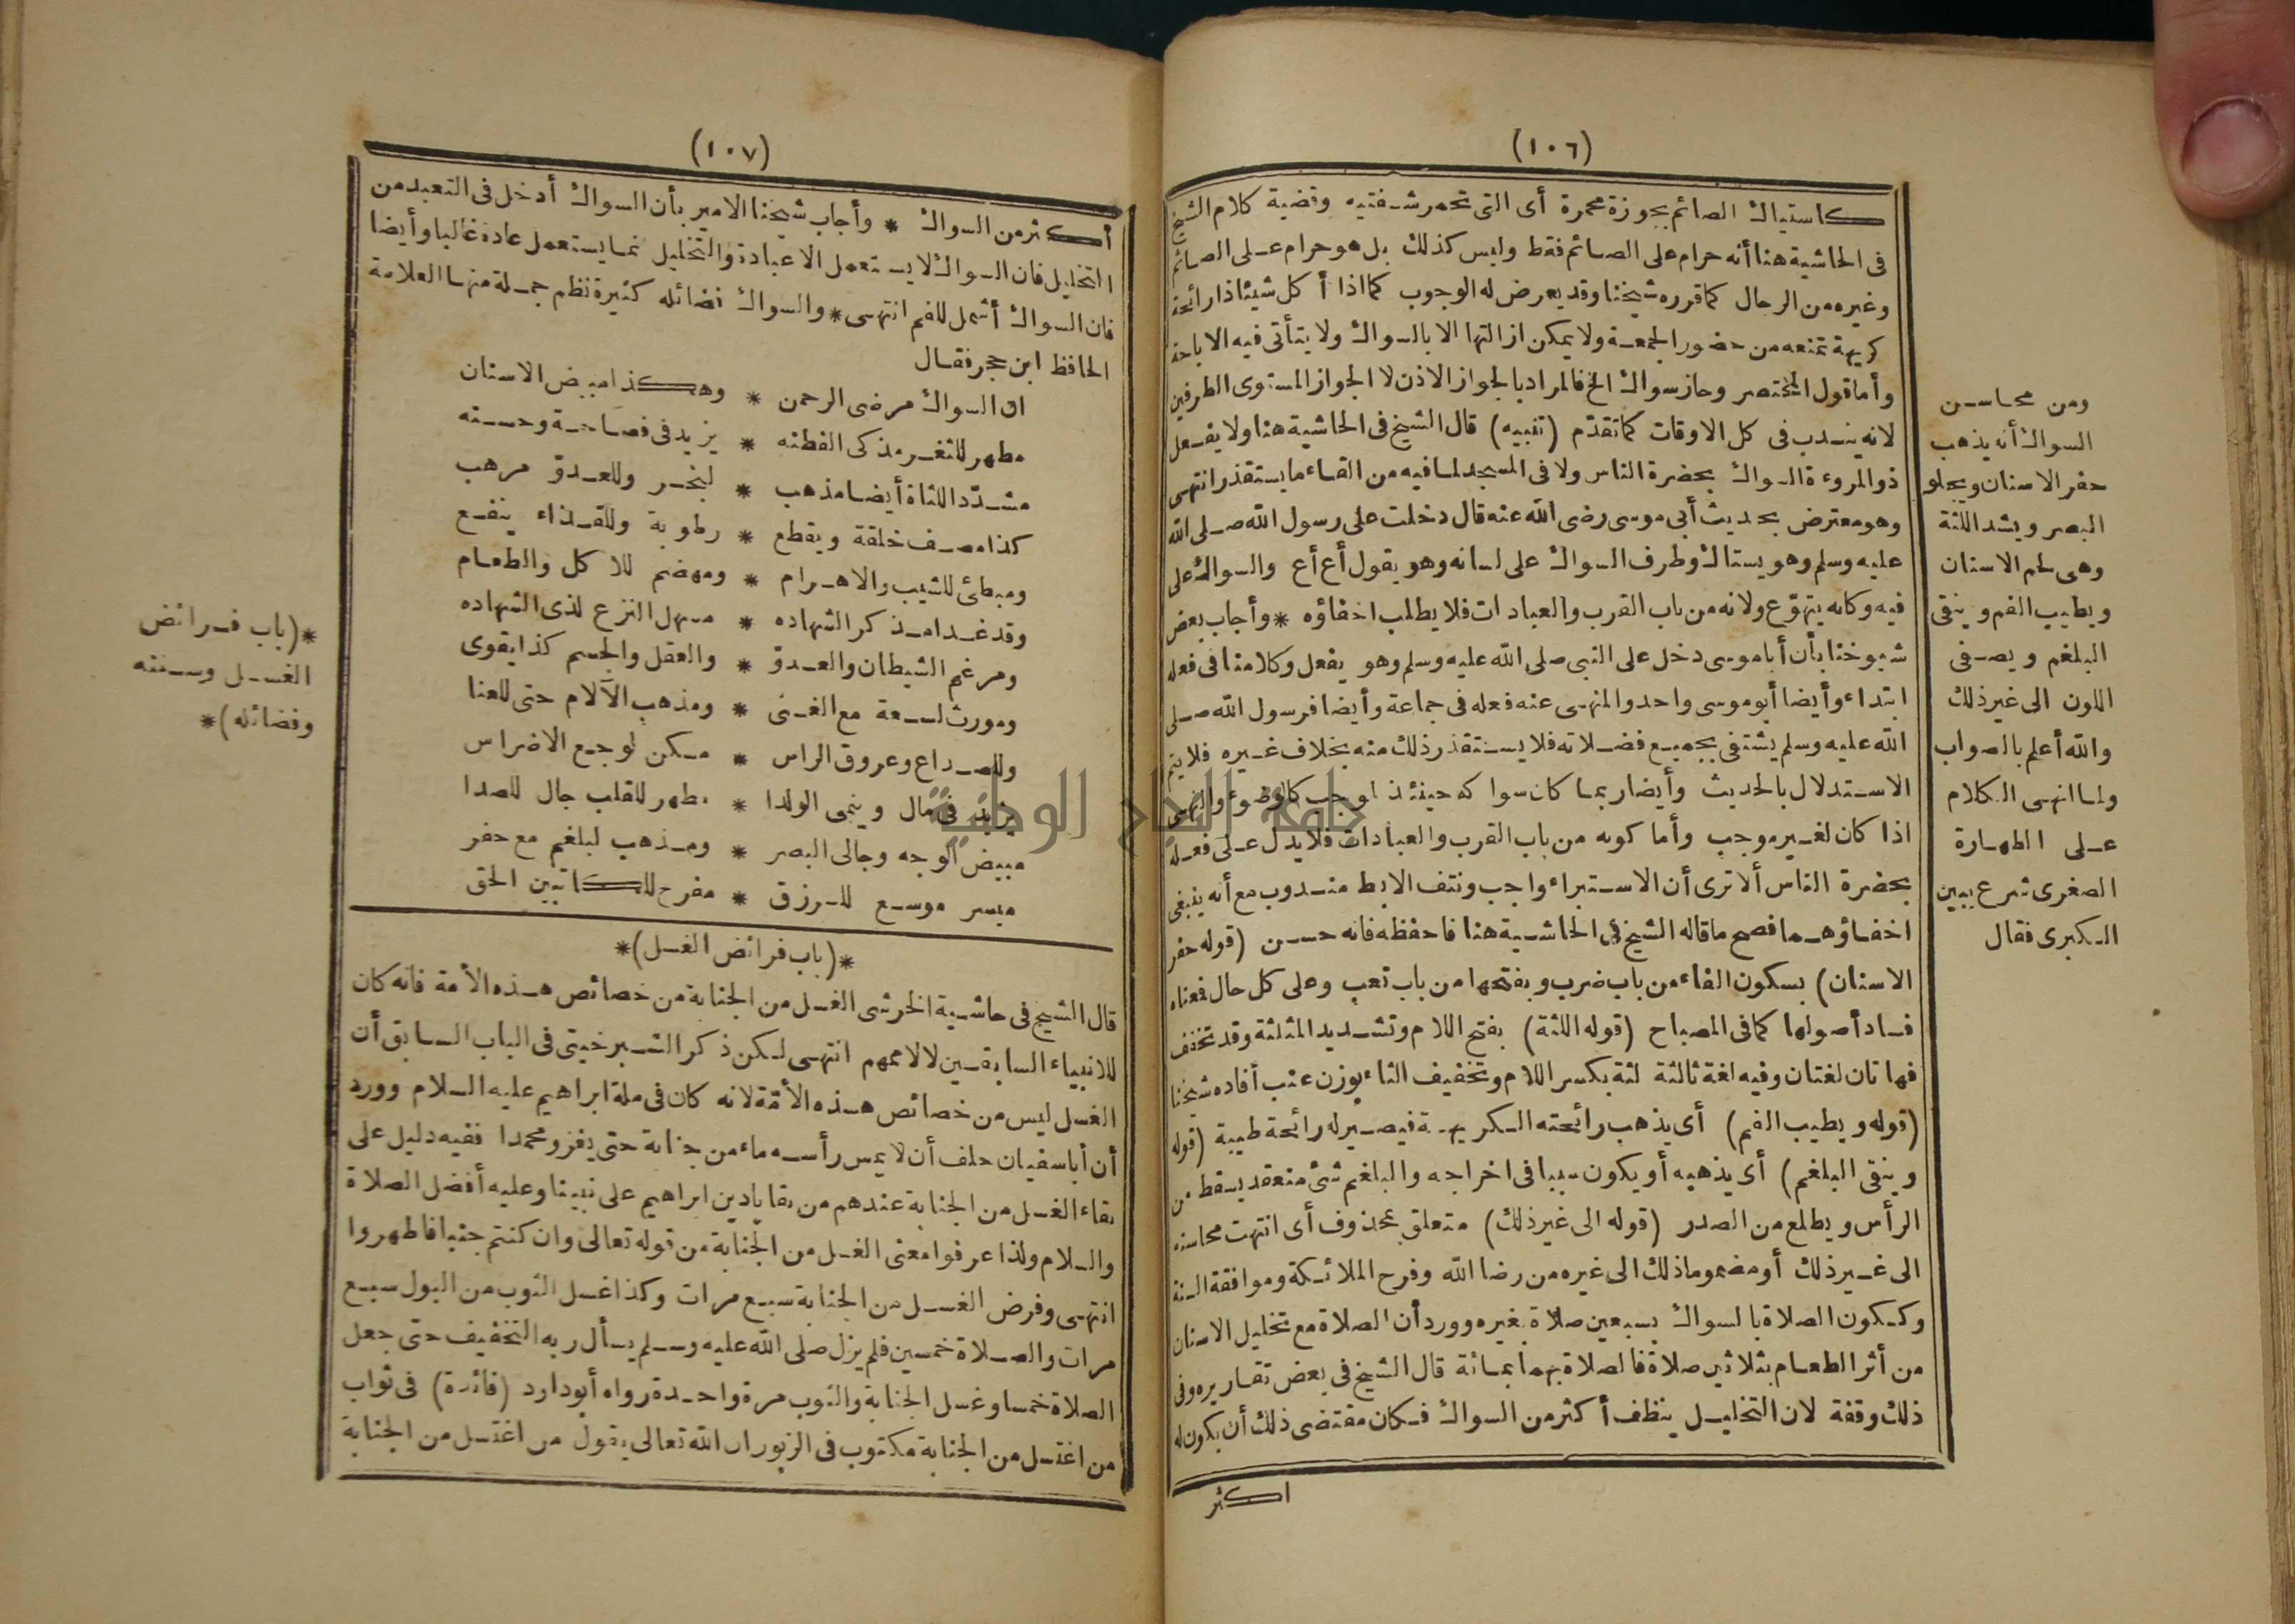 (١٠٦)
كاستياك الصائم بجوزة محمرة أى التى تحمر شفتيه وقضية كلام الشيخ
فى الحاشية هنا أنه حرام على الصائم فقط وليس كذلك بل هو حرام على الصائم
وغيره من الرجال كما قرره شيخنا وقد يعرض له الوجوب كما اذا أكل شيئا ذا رائحة
كريهة تمنعه من حضور الجمعة ولا يمكن ازالتها الا بالسواك ولا يتأتى فيه الاباحة
وأما قول المختصر وجاز سواك الخ فالمراد بالجواز الاذن لا الجواز المستوى الطرفين
لانه يندب فى كل الاوقات كما تقدّم (تنبيه) قال الشيخ فى الحاشية هنا ولا يفعل
ذو المروءة السواك بحضرة الناس ولا فى المسجد لما فيه من القاء ما يستقذر انتهى
وهو معترض بحديث أبى موسى رضى الله عنه قال دخلت على رسول الله صلى الله
عليه وسلم وهو يستاك وطرف السواك على لسانه وهو يقول أع أع والسواك على
فيه وكانه يتهوّع ولانه من باب القرب والعبادات فلا يطلب اخفاؤه * وأجاب بعض
شيوخنا بأن أبا موسى دخل على النبى صلى الله عليه وسلم وهو يفعل وكلامنا فى فعله
ابتداء وأيضا أبو موسى واحد والمنهى عنه فعله فى جماعة وأيضا فرسول الله صلى
الله عليه وسلم يشتفى بجميع فضلاته فلا يستقذر ذلك منه بخلاف غيره فلا يتم
الاستدلال بالحديث وأيضا ربما كان سواكه حينئذ لموجب كالوضوء والنهى
اذا كان لغير موجب وأما كونه من باب القرب والعبادات فلا يدل على فعله
بحضرة الناس ألا ترى أن الاستبراء واجب ونتف الابط مندوب مع أنه ينبغى
اخفاؤهما فصح ما قاله الشيخ فى الحاشية هنا فاحفظه فانه حسن (قوله حفر
الاسنان) بسكون الفاء من باب ضرب وبفتحها من باب تعب وعلى كل حال فمعناه
فساد أصولها كما فى المصباح (قوله اللثة) بفتح اللام وتشديد المثلثة وقد تخفف
فهاتان لغتان وفيه لغة ثالثة لثة بكسر اللام وتخفيف الثاء بوزن عنب أفاده شيخنا
(قوله ويطيب الفم) أى يذهب رائحته الكريهة فيصير له رائحة طيبة (قوله
وينقى البلغم) أى يذهبه أو يكون سببا فى اخراجه والبلغم شئ منعقد يسقط من
الرأس ويطلع من الصدر (قوله الى غير ذلك) متعلق بمحذوف أى انتهت محاسنه
الى غير ذلك أو مضموما ذلك الى غيره من رضا الله وفرح الملائكة وموافقة السنة
وككون الصلاة بالسواك بسبعين صلاة بغيره وورد أن الصلاة مع تخليل الاسنان
من أثر الطعام بثلاثين صلاة فالصلاة بهما بمائة قال الشيخ فى بعض تقاريره وفى
ذلك وقفة لان التخليل ينظف أكثر من السواك فكان مقتضى ذلك أن يكون له
اكثر
ومن محاسن
السواك أنه يذهب
حفر الاسنان ويجلو
البصر ويشد اللثة
وهى لحم الاسنان
ويطيب الفم وينقى
البلغم ويصفى
اللون الى غير ذلك
والله أعلم بالصواب
ولما انهى الكلام
على الطهارة
الصغرى شرع يبين
الكبرى فقال
(١٠٧)
أكثر من السواك * وأجاب شيخنا الامير بأن السواك أدخل فى التعبد من
التخليل فان السواك لا يستعمل الا عبادة والتخليل مما يستعمل عادة غالبا وأيضا
فان السواك أشمل للفم انتهى * والسواك فضائله كثيرة نظم جملة منها العلامة
الحافظ ابن حجر فقال
ان السواك مرضى الرحمن * وهكذا مبيض الاسنان
مطهر للثغر مذكى الفطنه * يزيد فى فصاحة وحسنه
مشدّد اللثاة أيضا مذهب * لبخر وللعدوّ مرهب
كذا مصف خلقة ويقطع * رطوبة وللغذاء ينفع
ومبطئ للشيب والاهرام * ومهضم للاكل والطعام
وقد غدا مذكر الشهاده * مسهل النزع لذى الشهاده
ومرغم الشيطان والعدوّ * والعقل والجسم كذا يقوى
ومورث لسعة مع الغنى * ومذهب الآلام حتى للعنا
وللصداع وعروق الراس * مسكن لوجع الاضراس
يزيد فى مال وينمى الولدا * مطهر للقلب جال للصدا
مبيض الوجه وجالى البصر * ومذهب لبلغم مع حفر
ميسر موسع للرزق * مفرح للكاتبين الحق
*(باب فرائض الغسل)*
قال الشيخ فى حاشية الخرشى الغسل من الجنابة من خصائص هذه الأمة فانه كان
للانبياء السابقين لا لاممهم انتهى لكن ذكر الشبرخيتى فى الباب السابق أن
الغسل ليس من خصائص هذه الأمّة لانه كان فى ملة ابراهيم عليه السلام وورد
أن أبا سفيان حلف أن لا يمس رأسه ماء من جنابة حتى يغزو محمدا ففيه دليل على
بقاء الغسل من الجنابة عندهم من بقايا دين ابراهيم على نبينا وعليه أفضل الصلاة
والسلام ولذا عرفوا معنى الغسل من الجنابة من قوله تعالى وان كنتم جنبا فاطهروا
انتهى وفرض الغسل من الجنابة سبع مرات وكذا غسل الثوب من البول سبع
مرات والصلاة خمسين فلم يزل صلى الله عليه وسلم يسأل ربه التخفيف حتى جعل
الصلاة خمسا وغسل الجنابة والثوب مرة واحدة رواه أبو دارد (فائدة) فى ثواب
من اغتسل من الجنابة مكتوب فى الزبور ان الله تعالى يقول من اغتسل من الجنابة
*(باب فرائض
الغسل وسننه
وفضائله)*
جامعة النجاح الوطنية